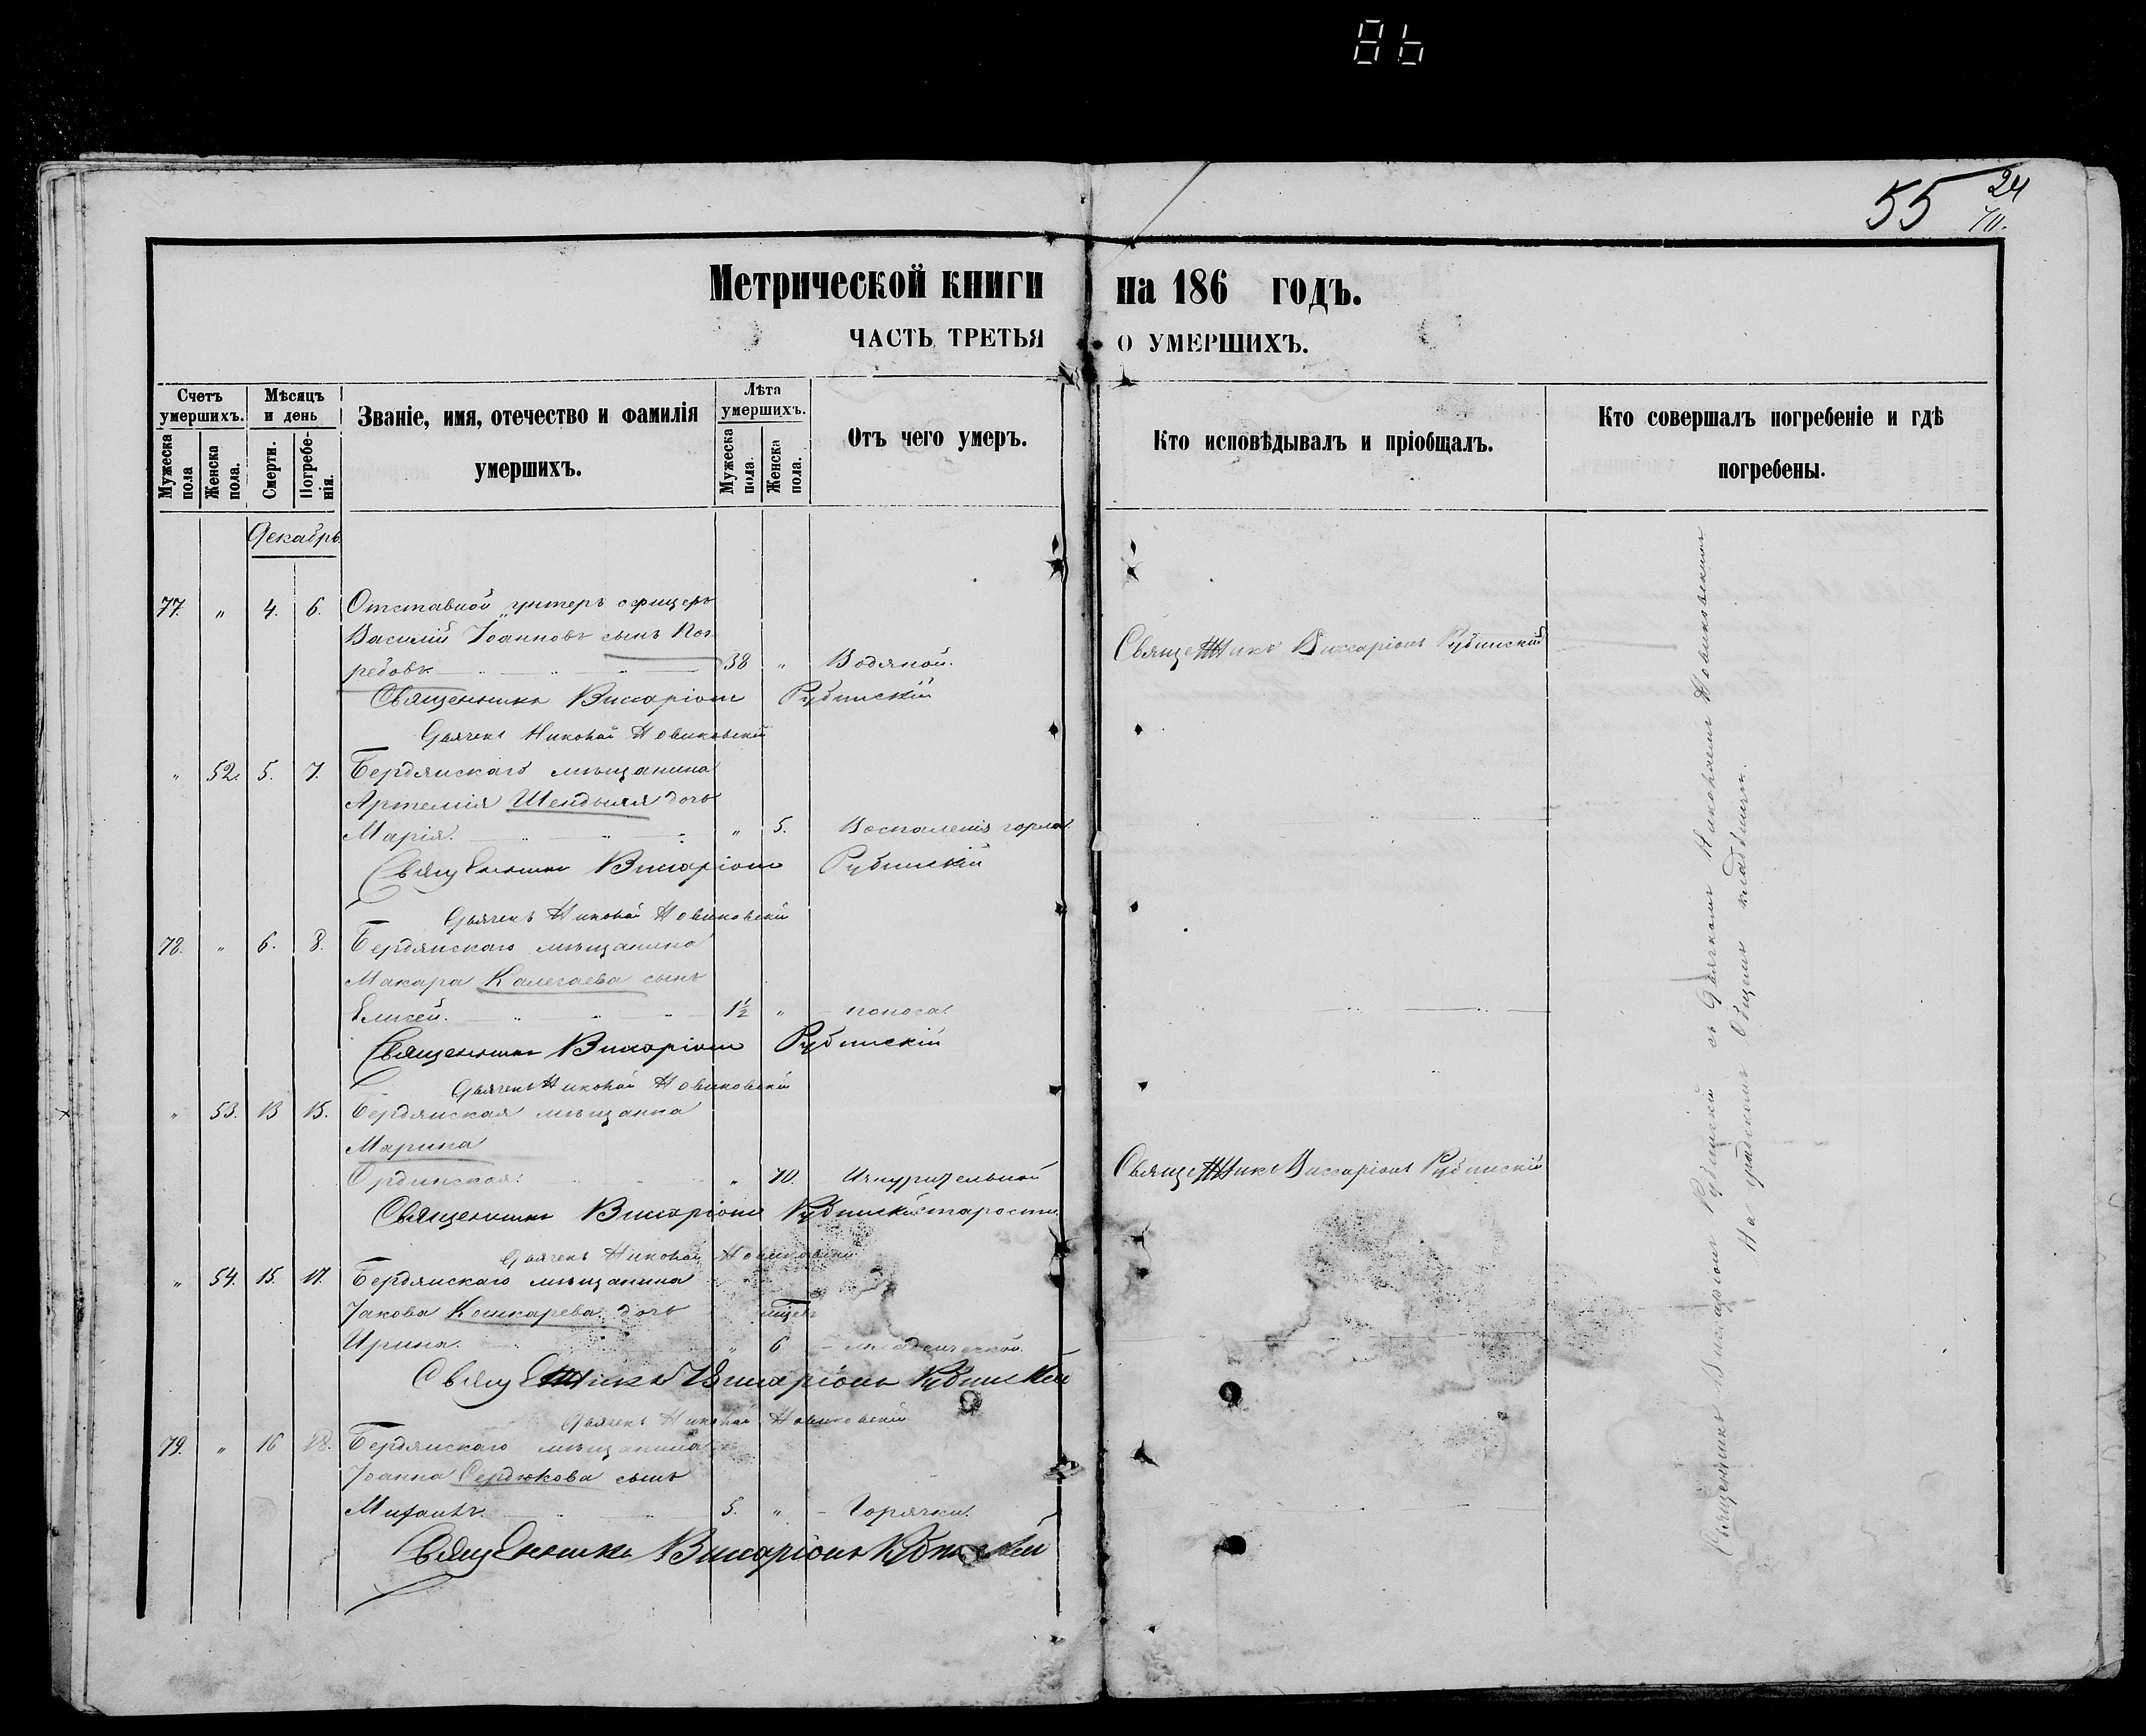 86
55 24
70.
Метрической книги на 186 годъ.
ЧАСТЬ ТРЕТЬЯ О УМЕРШИХЪ.
Счетъ умершихъ.
Мужеска пола
Женска пола.
Мѣсяцъ и день
Смерти.
Погребе-нія.
Званіе, имя, отечество и фамилія
умершихъ.
Лѣта умершихъ.
Мужеска пола.
Женска пола.
Отъ чего умеръ.
Кто исповѣдывалъ и пріобщалъ.
Кто совершалъ погребеніе и гдѣ
погребены.
Декабрь
77. " 4. 6. Отставной унтеръ офицеръ
Василій Іоанновъ сынъ
редовъ. 38 " Водяной. Священникъ Виссаріонъ Рубинскій
Священникъ Виссаріонъ Рубинскій
Дьячекъ Николай Новиковскій
" 52. 5. 7. Бердянскаго мѣщанина
Артемія дочь
Марія. " 5. Воспаленія горла.
Священникъ Виссаріонъ Рубинскій
Дьячекъ Николай Новиковскій
78. " 6. 8. Бердянскаго мѣщанина
Макара Калегаева сынъ
Елисей. 1½ " поноса.
Священникъ Виссаріонъ Рубинскій
Дьячекъ Николай Новиковскій
" 53. 13 15. Бердянская мѣщанка
Марина
Ординская. " 70. Изнурительной Священникъ Виссаріонъ Рубинскій
Священникъ Виссаріонъ Рубинскій старости
Дьячекъ Николай Новиковскій
" 54. 15. 17. Бердянскаго мѣщанина
Іакова Кошкарева дочь
Ирина. " 6 младенческой.
Священникъ Виссаріонъ Рубинскій
Дьячекъ Николай Новиковскій
79. " 16 18. Бердянскаго мѣщанина
Іоанна Сердюкова сынъ
5. " Горячки.
Священникъ Виссаріонъ Рубинскій
Священникъ Виссаріонъ Рубинскій съ Дьячкомъ Николаемъ Новиковскимъ
На градскомъ Общемъ кладбищѣ.